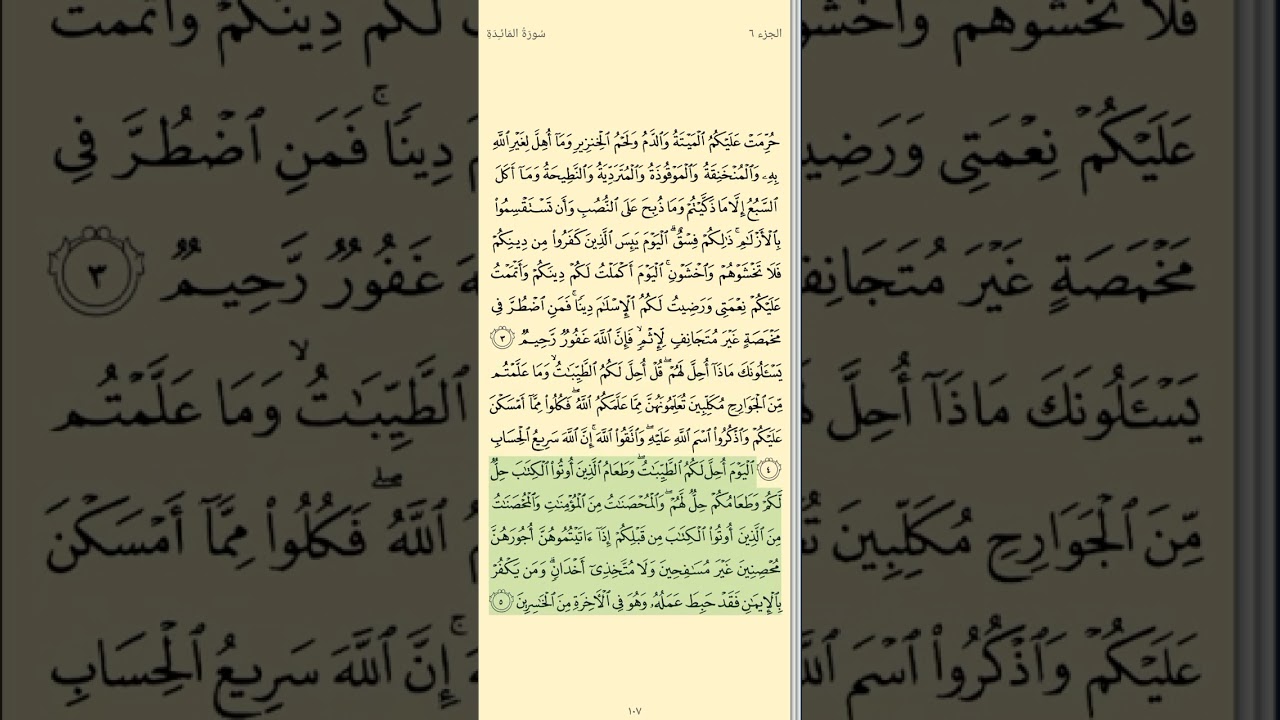 الجزء ٦
سُورَةُ المَائـِدَةِ
حُرِّمَتۡ عَلَيۡكُمُ ٱلۡمَيۡتَةُ وَٱلدَّمُ وَلَحۡمُ ٱلۡخِنزِيرِ وَمَآ أُهِلَّ لِغَيۡرِ ٱللَّهِ
بِهِۦ وَٱلۡمُنۡخَنِقَةُ وَٱلۡمَوۡقُوذَةُ وَٱلۡمُتَرَدِّيَةُ وَٱلنَّطِيحَةُ وَمَآ أَكَلَ
ٱلسَّبُعُ إِلَّا مَا ذَكَّيۡتُمۡ وَمَا ذُبِحَ عَلَى ٱلنُّصُبِ وَأَن تَسۡتَقۡسِمُواْ
بِٱلۡأَزۡلَٰمِۚ ذَٰلِكُمۡ فِسۡقٌۗ ٱلۡيَوۡمَ يَئِسَ ٱلَّذِينَ كَفَرُواْ مِن دِينِكُمۡ
فَلَا تَخۡشَوۡهُمۡ وَٱخۡشَوۡنِۚ ٱلۡيَوۡمَ أَكۡمَلۡتُ لَكُمۡ دِينَكُمۡ وَأَتۡمَمۡتُ
عَلَيۡكُمۡ نِعۡمَتِي وَرَضِيتُ لَكُمُ ٱلۡإِسۡلَٰمَ دِينٗاۚ فَمَنِ ٱضۡطُرَّ فِي
مَخۡمَصَةٍ غَيۡرَ مُتَجَانِفٖ لِّإِثۡمٖۙ فَإِنَّ ٱللَّهَ غَفُورٞ رَّحِيمٞ ٣
يَسۡـَٔلُونَكَ مَاذَآ أُحِلَّ لَهُمۡۖ قُلۡ أُحِلَّ لَكُمُ ٱلطَّيِّبَٰتُۙ وَمَا عَلَّمۡتُم
مِّنَ ٱلۡجَوَارِحِ مُكَلِّبِينَ تُعَلِّمُونَهُنَّ مِمَّا عَلَّمَكُمُ ٱللَّهُۖ فَكُلُواْ مِمَّآ أَمۡسَكۡنَ
عَلَيۡكُمۡ وَٱذۡكُرُواْ ٱسۡمَ ٱللَّهِ عَلَيۡهِۖ وَٱتَّقُواْ ٱللَّهَۚ إِنَّ ٱللَّهَ سَرِيعُ ٱلۡحِسَابِ
٤ ٱلۡيَوۡمَ أُحِلَّ لَكُمُ ٱلطَّيِّبَٰتُۖ وَطَعَامُ ٱلَّذِينَ أُوتُواْ ٱلۡكِتَٰبَ حِلّٞ
لَّكُمۡ وَطَعَامُكُمۡ حِلّٞ لَّهُمۡۖ وَٱلۡمُحۡصَنَٰتُ مِنَ ٱلۡمُؤۡمِنَٰتِ وَٱلۡمُحۡصَنَٰتُ
مِنَ ٱلَّذِينَ أُوتُواْ ٱلۡكِتَٰبَ مِن قَبۡلِكُمۡ إِذَآ ءَاتَيۡتُمُوهُنَّ أُجُورَهُنَّ
مُحۡصِنِينَ غَيۡرَ مُسَٰفِحِينَ وَلَا مُتَّخِذِيٓ أَخۡدَانٖۗ وَمَن يَكۡفُرۡ
بِٱلۡإِيمَٰنِ فَقَدۡ حَبِطَ عَمَلُهُۥ وَهُوَ فِي ٱلۡأٓخِرَةِ مِنَ ٱلۡخَٰسِرِينَ ٥
١٠٧